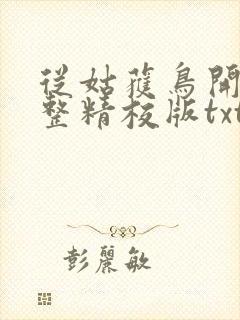 從姑獲鳥開
整精校版txt
彭麗敏